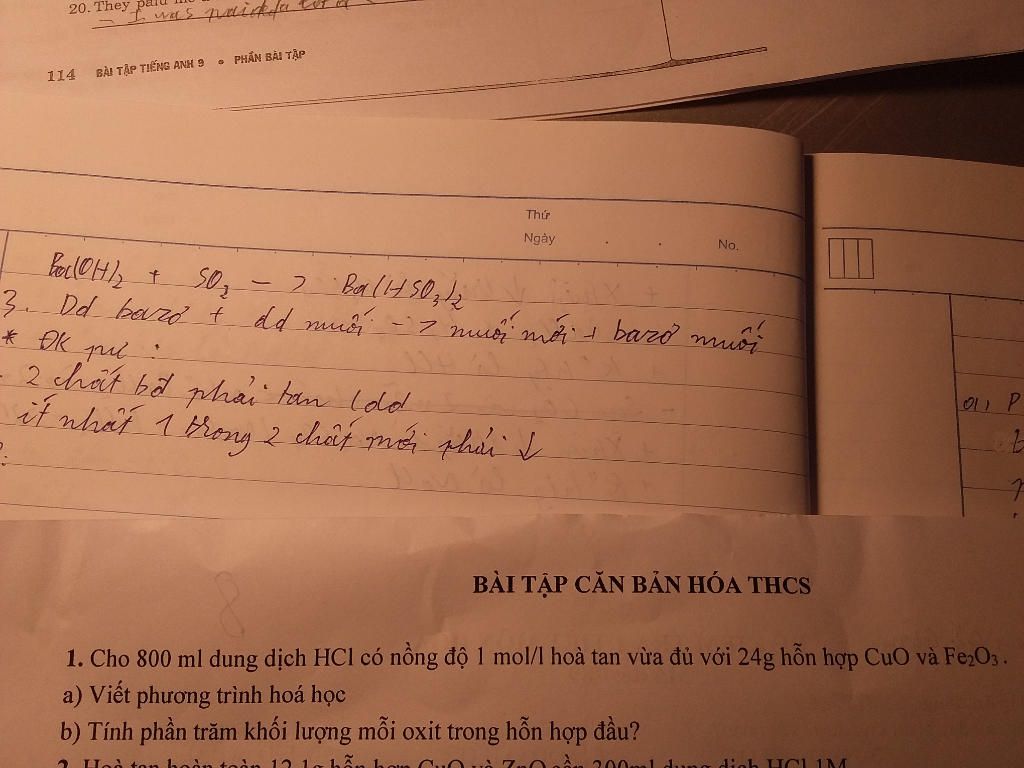 20. They paid
I was paid
114 BÀI TẬP TIẾNG ANH 9 • PHẦN BÀI TẬP
Thứ
Ngày . . No.
Ba(OH)2 + SO2 -> Ba(HSO3)2
3. Dd bazơ + dd muối -> muối mới + bazơ muối
* ĐK pư :
- 2 chất bđ phải tan (dd
ít nhất 1 trong 2 chất mới phải ↓
a, P
BÀI TẬP CĂN BẢN HÓA THCS
8
1. Cho 800 ml dung dịch HCl có nồng độ 1 mol/l hoà tan vừa đủ với 24g hỗn hợp CuO và Fe2O3 .
a) Viết phương trình hoá học
b) Tính phần trăm khối lượng mỗi oxit trong hỗn hợp đầu?
2. Hoà tan hoàn toàn 12,1g hỗn hợp CuO và ZnO cần 300ml dung dịch HCl 1M